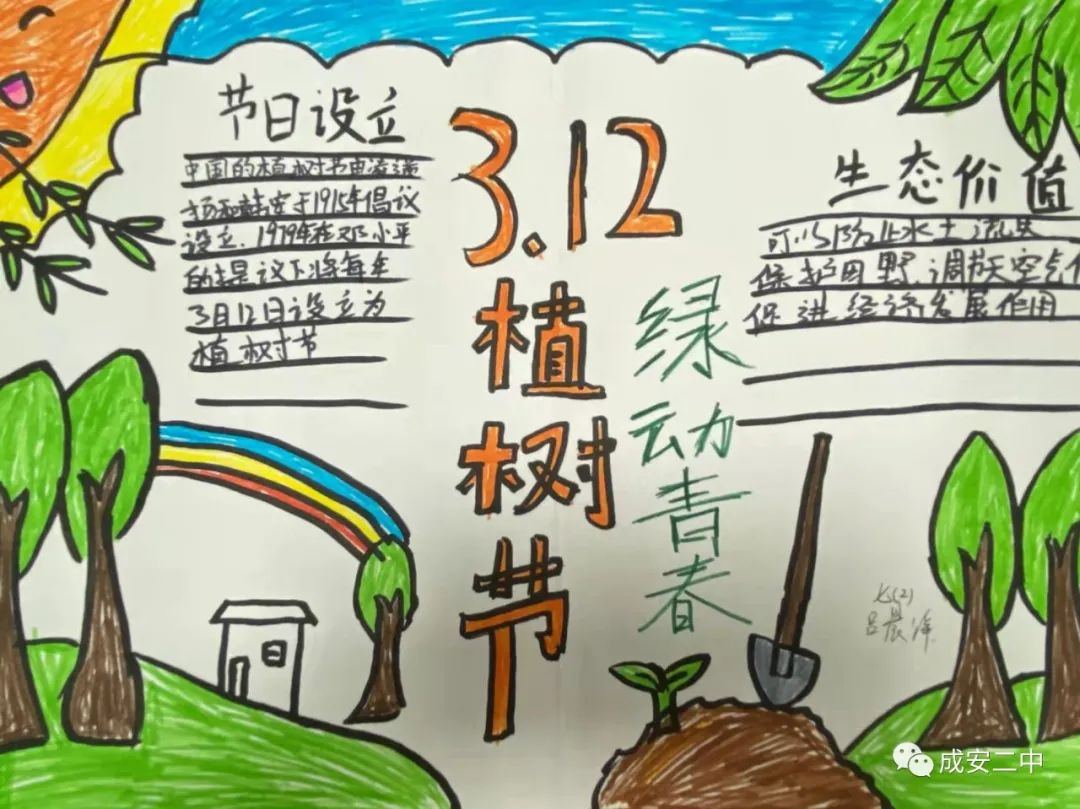 节日设立
中国的植树节由凌道
扬和韩安于1915年倡议
设立，1979年在邓小平
的提议下将每年
3月12日设立为
植树节
3.12
植树节
绿动青春
生态价值
可以防止水土流失
保护田野、调节天空气
促进经济发展作用
七(2)
吕晨
成安二中